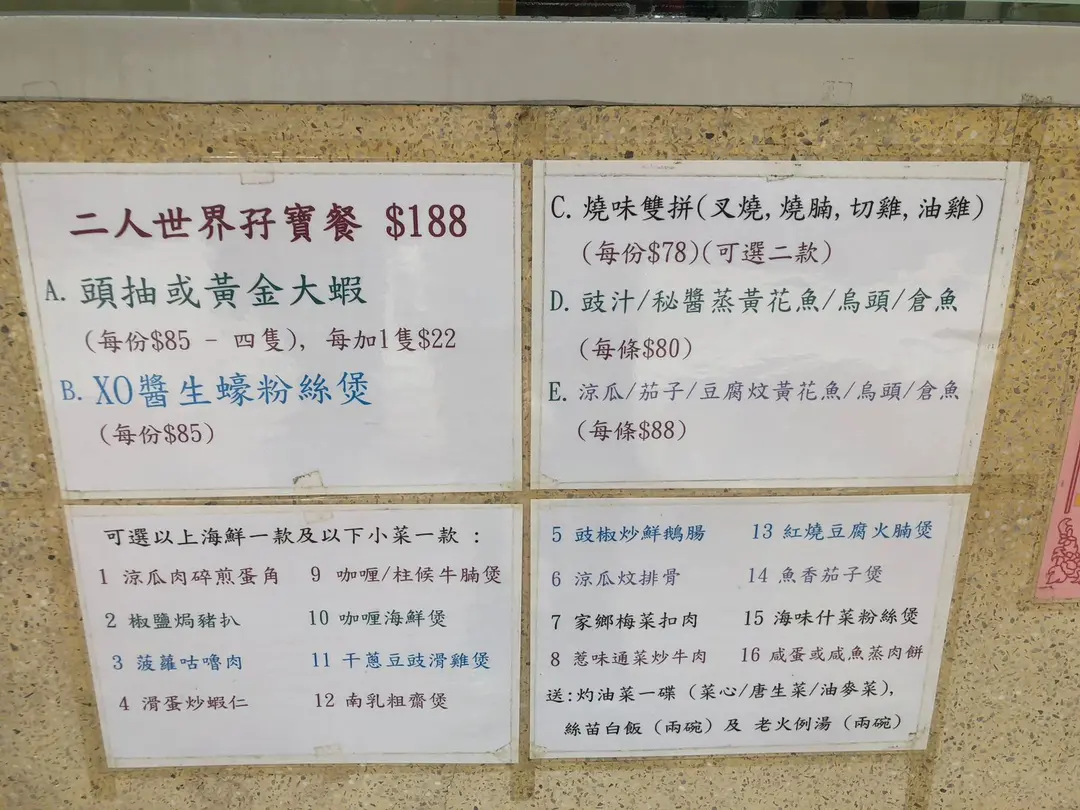 二人世界孖寶餐 $188
A. 頭抽或黃金大蝦
(每份$85 - 四隻), 每加1隻$22
B. XO醬生蠔粉絲煲
(每份$85)
C. 燒味雙拼(叉燒,燒腩,切雞,油雞)
(每份$78)(可選二款)
D. 豉汁/秘醬蒸黃花魚/烏頭/倉魚
(每條$80)
E. 涼瓜/茄子/豆腐炆黃花魚/烏頭/倉魚
(每條$88)
可選以上海鮮一款及以下小菜一款 :
1 涼瓜肉碎煎蛋角
2 椒鹽焗豬扒
3 菠蘿咕嚕肉
4 滑蛋炒蝦仁
9 咖喱/柱候牛腩煲
10 咖喱海鮮煲
11 干蔥豆豉滑雞煲
12 南乳粗齋煲
5 豉椒炒鮮鵝腸
6 涼瓜炆排骨
7 家鄉梅菜扣肉
8 惹味通菜炒牛肉
13 紅燒豆腐火腩煲
14 魚香茄子煲
15 海味什菜粉絲煲
16 咸蛋或咸魚蒸肉餅
送:灼油菜一碟 (菜心/唐生菜/油麥菜),
絲苗白飯 (兩碗) 及 老火例湯 (兩碗)